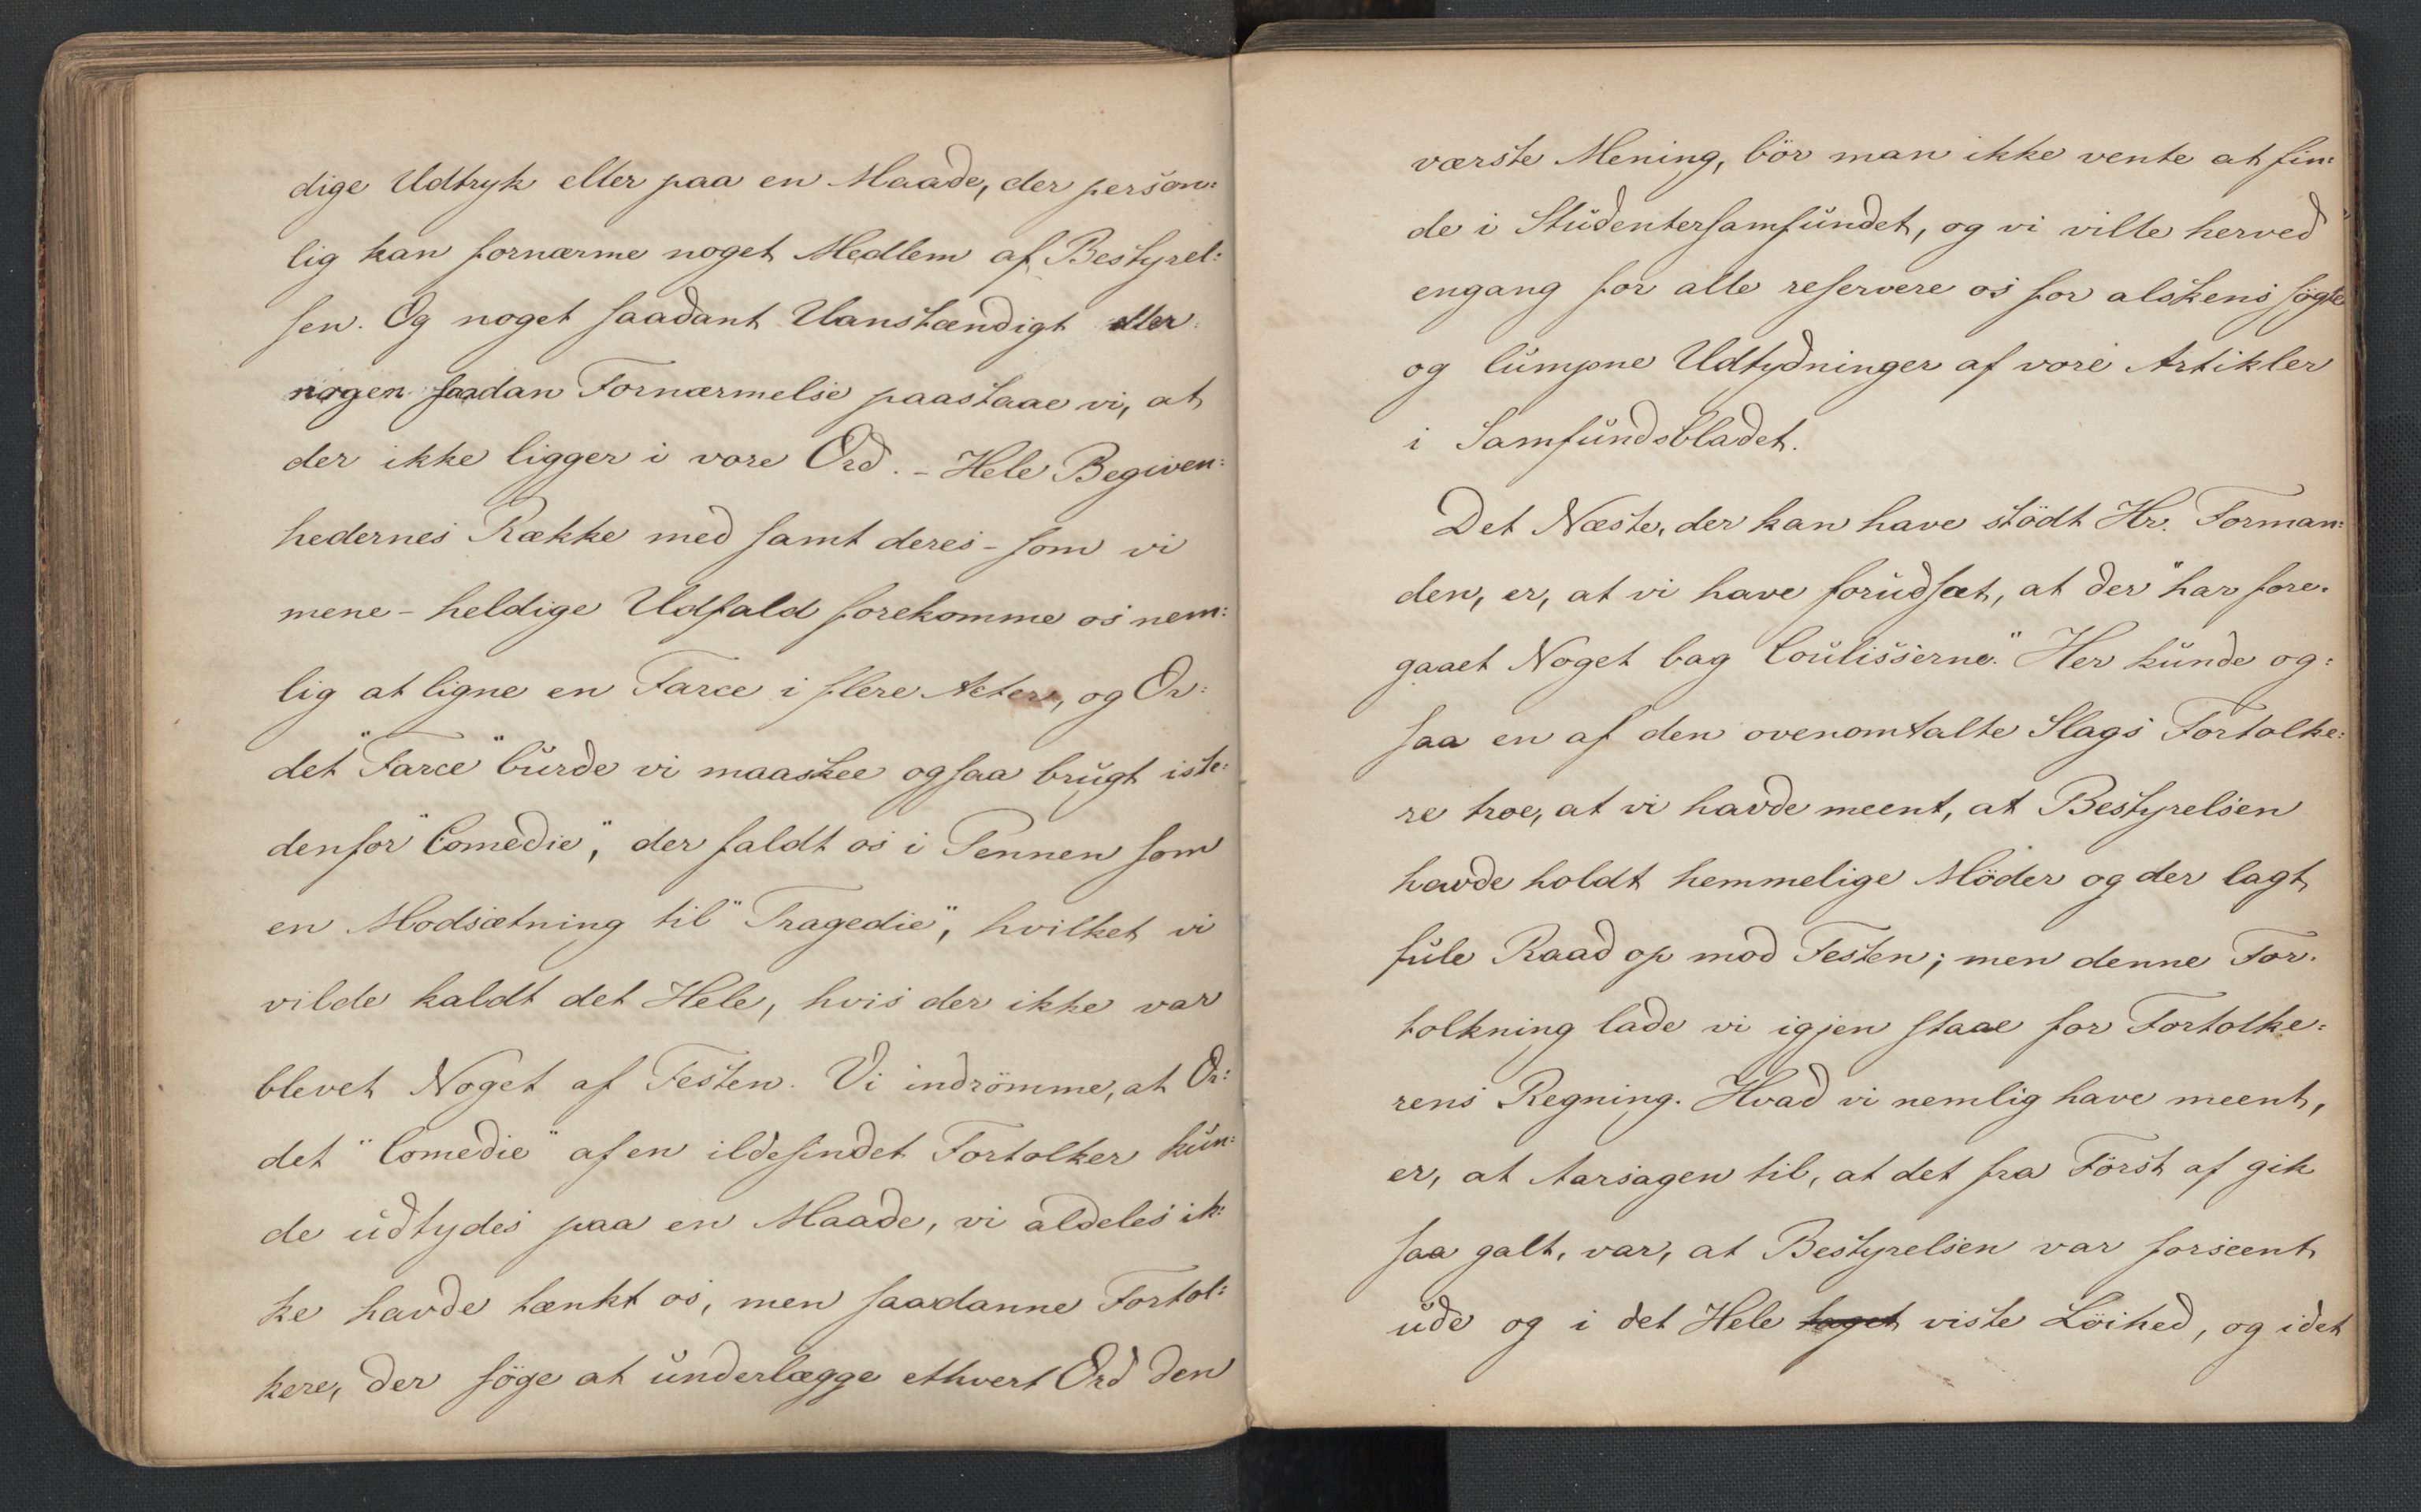 dige Udtryk eller paa en Maade, der person:
lig kan fornærme noget Medlem af Bestyrel:
sen. Og noget saadant Uanstændigt eller
nogen saadan Fornærmelse paastaae vi, at
der ikke ligger i vore Ord. - Hele Begiven:
hedernes Række med samt deres - som vi
mene - heldige Udfald forekomme os nem:
lig at ligne en Farce i flere Akter, og Or:
det "Farce" burde vi maaskee ogsaa brugt iste:
denfor "Comedie", der faldt os i Pennen som
en Modsætning til "Tragedie", hvilket vi
vilde kaldt det Hele, hvis der ikke var
blevet Noget af Festen. Vi indrömme, at Or:
det "Comedie" af en ildesindet Fortolker kun:
de udtydes paa en Maade, vi aldeles ik:
ke havde tænkt os, men saadanne Fortol:
kere, der söge at underlægge ethvert Ord den
værste Mening, bör man ikke vente at fin:
de i Studentersamfundet, og vi ville herved
engang for alle reservere os for alskens sögte
og lumpne Udtydninger af vore Artikler
i Samfundsbladet.
Det Næste, der kan have stödt Hr. Forman:
den, er, at vi have forudsæt, at der "har fore-
gaaet Noget bag Coulisserne." Her kunde og:
saa en af den ovenomtalte Slags Fortolke:
re troe, at vi havde meent, at Bestyrelsen
havde holdt hemmelige Möder og der lagt
fule Raad op mod Festen; men denne For-
tolkning lade vi igjen staae for Fortolke:
rens Regning. Hvad vi nemlig have meent,
er, at Aarsagen til, at det fra Först af gik
saa galt, var, at Bestyrelsen var forseent
ude og i det Hele taget viste Löihed, og idet